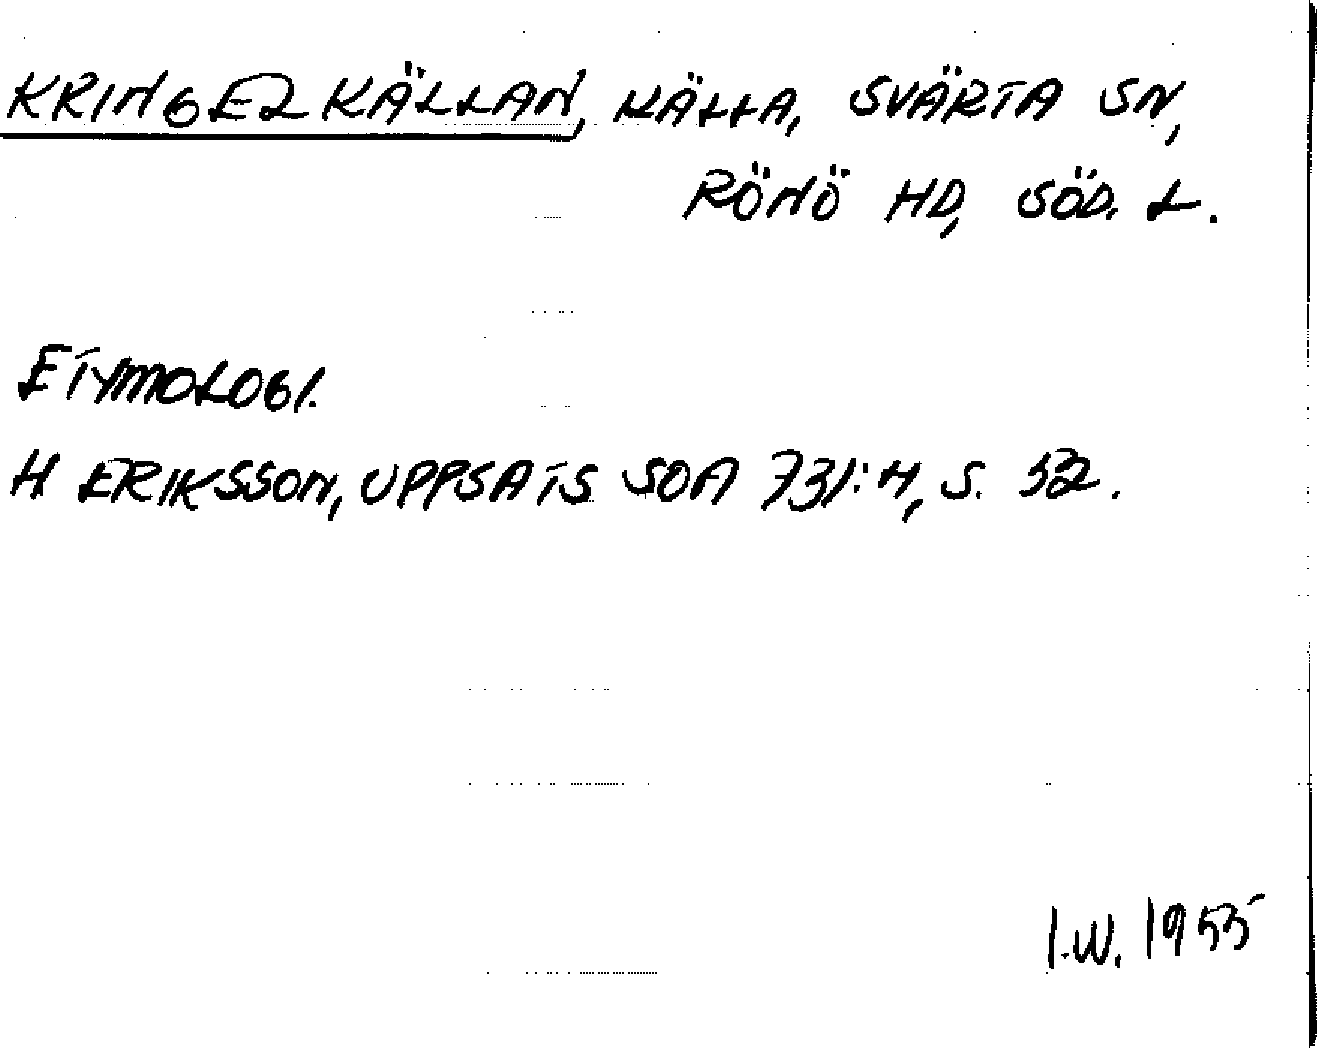 KRINGELKÄLLAN, KÄLLA, SVÄRTA SN,
RÖNÖ HD, SÖD. L.
ETYMOLOGI.
H ERIKSSON, UPPSATS SOA 731:4, S. 52.
I.W. 1955